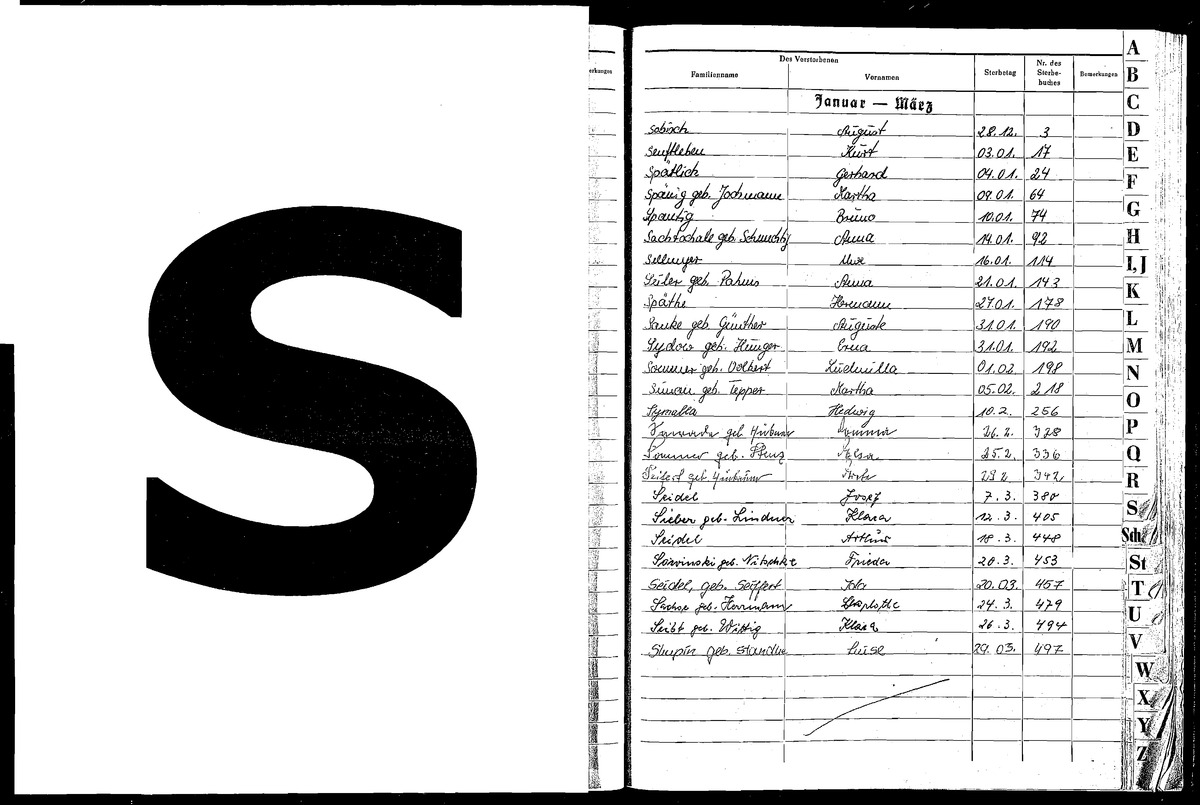 S
erkungen
Des Verstorbenen
Familienname Vornamen Sterbetag Nr. des Sterbe-buches Bemerkungen
Januar — März
Sobisch August 28.12. 3
Senftleben Kurt 03.01. 17
Spätlich Gerhard 04.01. 24
Spänig geb. Jochmann Martha 09.01. 64
Spantig Bruno 10.01. 74
geb. Anna 14.01. 92
Sellmeyer 16.01. 114
Seiler geb. Anna 21.01. 143
Späthe Hermann 27.01. 178
Sauke geb. Günther Auguste 31.01. 190
Sydow geb. Hunger Erna 31.01. 192
Sommer geb. Volkert Ludmilla 01.02. 198
Simon geb. Tepper Martha 05.02. 218
Symalla Hedwig 10.2. 256
geb. 26.2. 328
Sommer geb. 25.2. 336
Seifert geb. 342
Seidel Josef 7.3. 380
Sieber geb. Lindner Klara 12.3. 405
Seidel Arthur 18.3. 448
geb. Nitschke Frieda 20.3. 453
Seidel, geb. Seiffert Ida 20.03. 457
Sachse geb. Herrmann 24.3. 479
Seibt geb. Wittig Klara 26.3. 494
Skupin geb. Standke Luise 29.03. 497
A
B
C
D
E
F
G
H
I, J
K
L
M
N
O
P
Q
R
S
Sch
St
T
U
V
W
X
Y
Z